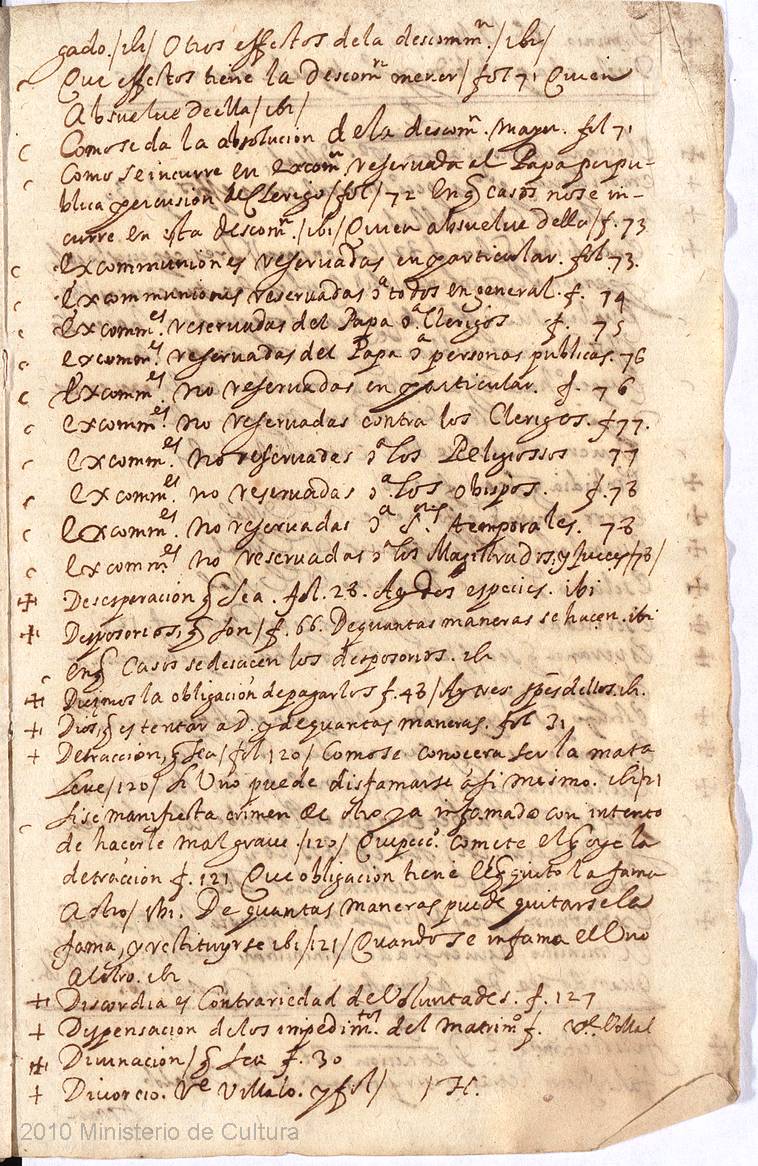 gado. /ibi/ Otros effectos de la descomm.ⁿ /ibi/
Que effectos tiene la Descom.ⁿ menor / fol 71 Quien
Absuelve de ella / ibi /
Como se da la absolucion de la descom.ⁿ mayor. fol 71
Como se incurre en excom.ⁿ reservada al Papa por pu-
blica percusion de Clerigo / fol / 72 En q̃ casos no se in-
curre en esta descom.ⁿ /ibi/ Quien absuelve della / f. 73
Excommuniones reservadas en particular. fol 73.
Excommuniones reservadas ɔ.ª todos en general. f. 74
Excomm.es reservadas del Papa ɔ.ª Clerigos f. 75
excomm.es reservadas del Papa ɔ.ª personas publicas. 76
Excomm.es no reservadas en particular. f. 76
Excomm.es no reservadas contra los Clerigos. f 77.
Excomm.es no reservadas ɔ.ª los Religiossos 77
Excomm.es no reservadas ɔ.ª los obispos. f. 78
Excomm.es no reservadas ɔ.ª S.res temporales. 78
excomm.es no reservadas ɔ.ª los Magistrados, y Jueces / 78 /
+ Desesperacion q̃ sea. fol. 28. Ay dos especies. ibi
+ Desposorios, q̃ son / f. 66. De quantas maneras se hacen. ibi
en q̃ Casos se desacen los desposorios. ibi
+ Diezmos la obligacion de pagarlos f. 48 / Ay tres spẽs dellos. ib.
+ Dios, q̃ es tentar a D. y de quantas maneras. fol 31
+ Detraccion, q̃ sea / fol 120 / Como se conocera ser la mata
Leve / 120 / Si Uno puede disfamarse à si mesmo. ibi /121
si se manifiesta crimen de otro ya infamado con intento
de hacerle mal grave / 120 / Que pecc.º comete el q̃ oye la
detraccion f. 121 Que obligacion tiene el q̃ quito la fama
A otro / ibi. De quantas maneras puede quitarse la
fama, y restituyrse ibi /121/ Quando se infama el Uno
al otro. ibi
+ Discordia es Contrariedad de Voluntades. f. 127
+ Dispensacion de los impedim.tos del matrim.º f. V.e Villal
+ Divinacion / q̃ sea f. 30
+ Divorcio. V.e Villalo. y fol / / H.
2010 Ministerio de Cultura